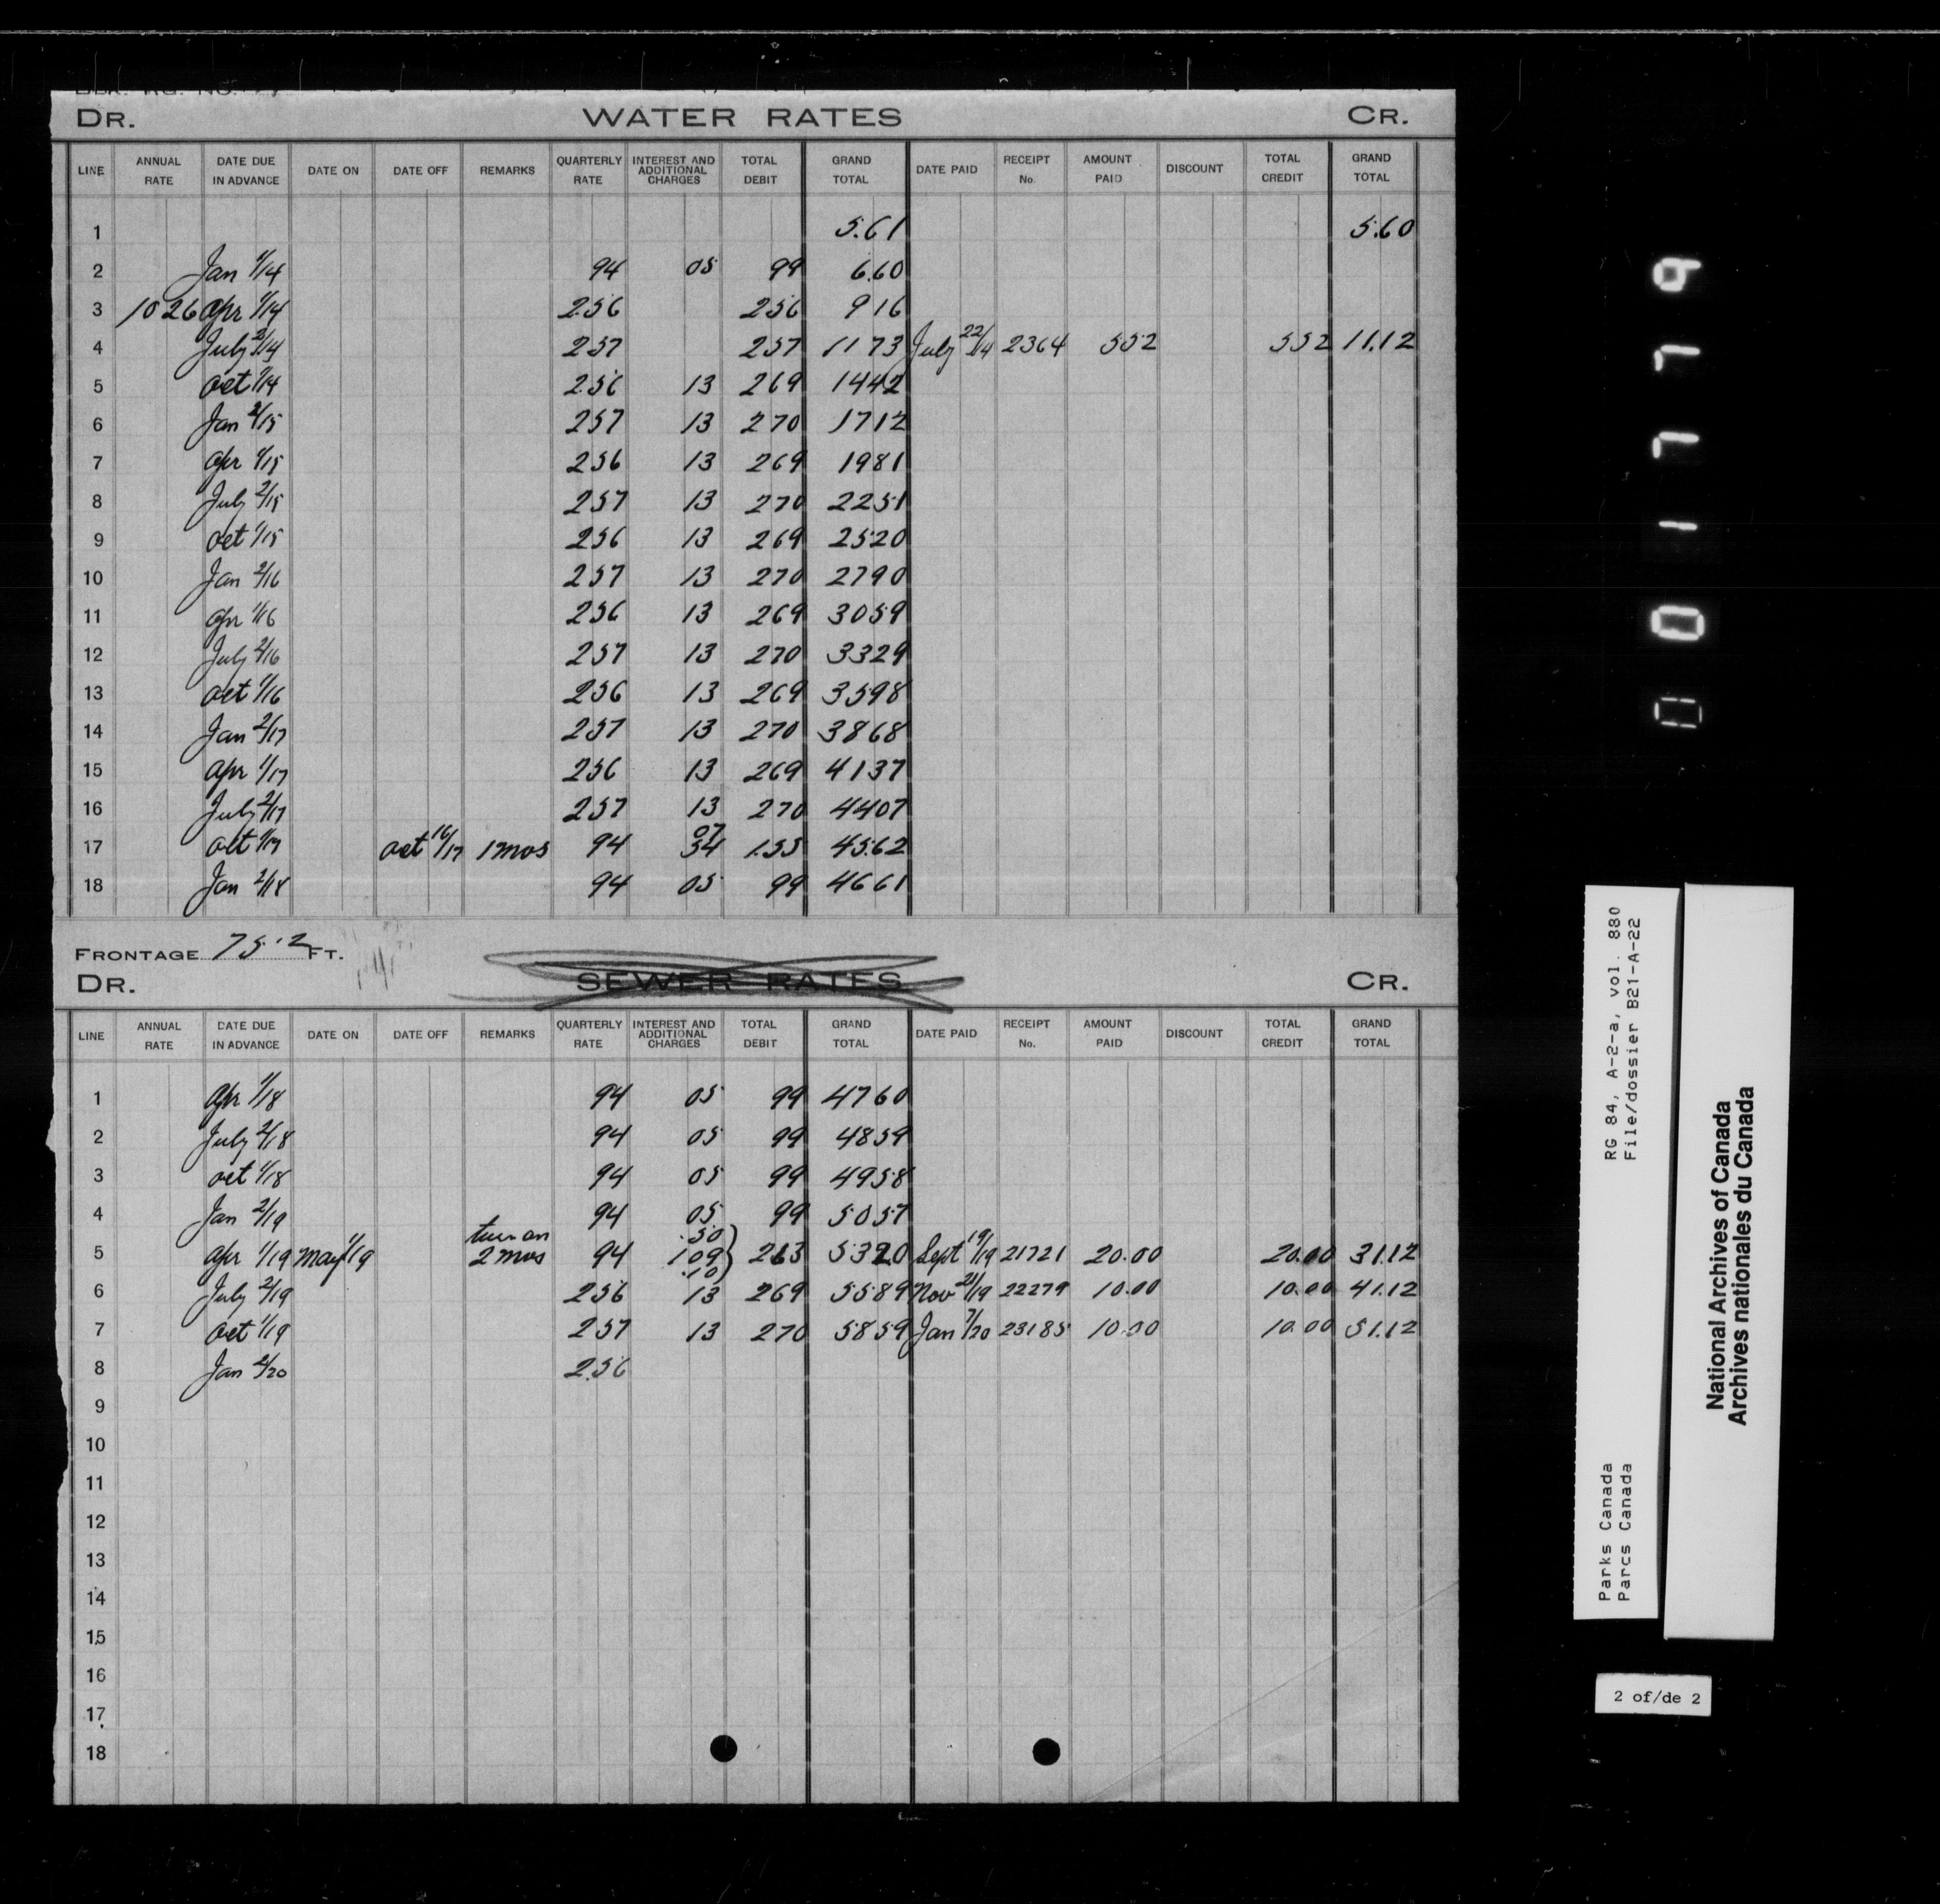 DR. WATER RATES CR.
LINE ANNUAL RATE DATE DUE IN ADVANCE DATE ON DATE OFF REMARKS QUARTERLY RATE INTEREST AND ADDITIONAL CHARGES TOTAL DEBIT GRAND TOTAL DATE PAID RECEIPT No. AMOUNT PAID DISCOUNT TOTAL CREDIT GRAND TOTAL
1 5.61 5.60
2 Jan 1/14 94 05 99 6.60
3 10 26 Apr 1/14 2.56 256 9 16
4 July 2/14 257 257 11 73 July 22/14 2364 552 552 11.12
5 Oct 1/14 2.56 13 269 1442
6 Jan 2/15 257 13 270 1712
7 Apr 1/15 256 13 269 1981
8 July 2/15 257 13 270 2251
9 Oct 1/15 256 13 269 2520
10 Jan 2/16 257 13 270 2790
11 Apr 1/16 256 13 269 3059
12 July 2/16 257 13 270 3329
13 Oct 1/16 256 13 269 3598
14 Jan 2/17 257 13 270 3868
15 Apr 1/17 256 13 269 4137
16 July 2/17 257 13 270 4407
17 Oct 1/17 Oct 16/17 1 mos 94 07 54 1.55 45.62
18 Jan 2/18 94 05 99 4661
FRONTAGE 75.2 FT.
DR. SEWER RATES CR.
LINE ANNUAL RATE DATE DUE IN ADVANCE DATE ON DATE OFF REMARKS QUARTERLY RATE INTEREST AND ADDITIONAL CHARGES TOTAL DEBIT GRAND TOTAL DATE PAID RECEIPT No. AMOUNT PAID DISCOUNT TOTAL CREDIT GRAND TOTAL
1 Apr 1/18 94 05 99 4760
2 July 2/18 94 05 99 4859
3 Oct 1/18 94 05 99 4958
4 Jan 2/19 94 05 99 5057
turn on .50
5 Apr 1/19 May 1/19 2 mos 94 1 09 263 5320 Sept 19/19 21721 20.00 20.00 31.12
.10
6 July 2/19 256 13 269 5589 Nov 21/19 22279 10.00 10.00 41.12
7 Oct 1/19 257 13 270 5859 Jan 7/20 23185 10.00 10.00 51.12
8 Jan 2/20 2.56
9
10
11
12
13
14
15
16
17
18
RG 84, A-2-a, vol. 880
File/dossier B21-A-22
Parks Canada
Parcs Canada
National Archives of Canada
Archives nationales du Canada
2 of/de 2